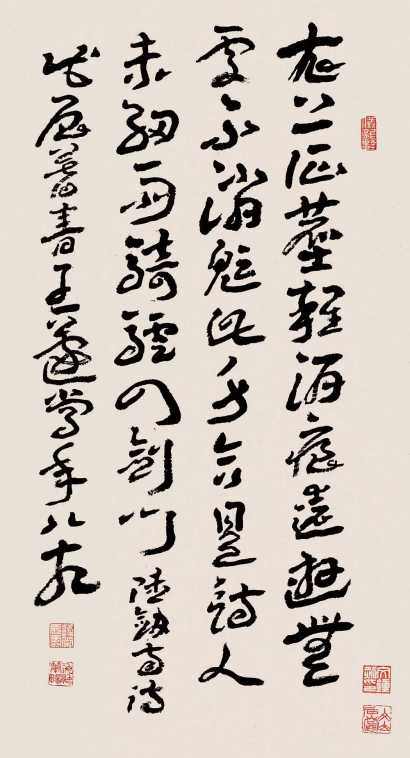 衣上征塵雜酒痕遠遊無
處不消魂此身合是詩人
未細雨騎驢入劍門陸劍南詩
戊辰暮春王蘧常年八十九